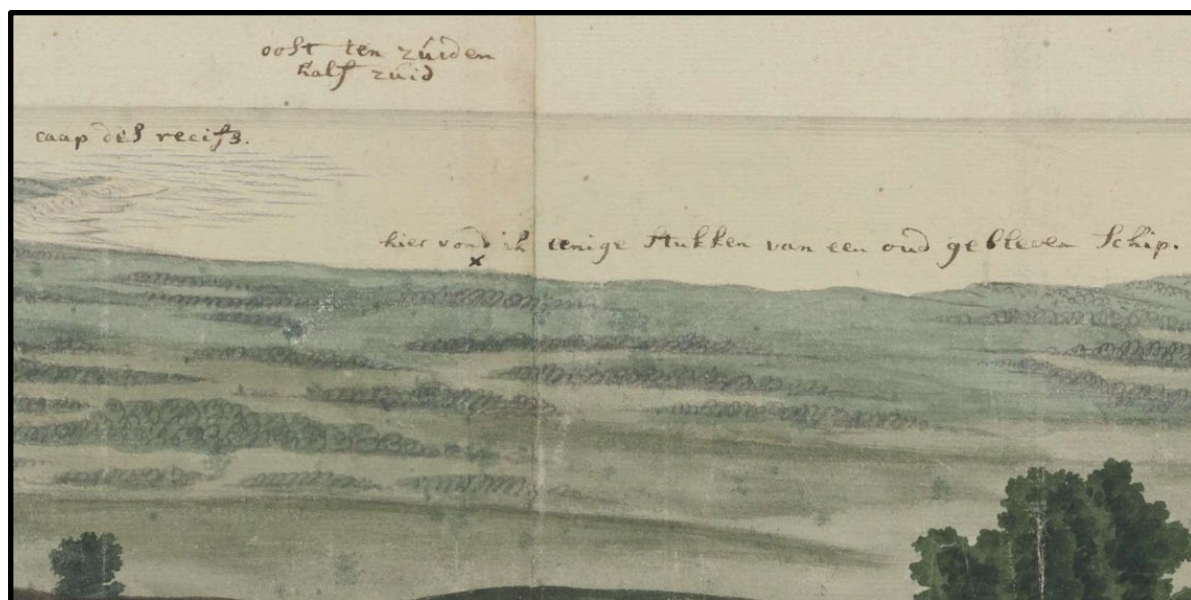 oost ten zúiden
half zúid
caap des recifs.
hier vond ik eenige stukken van een oud gebleven schip.
x